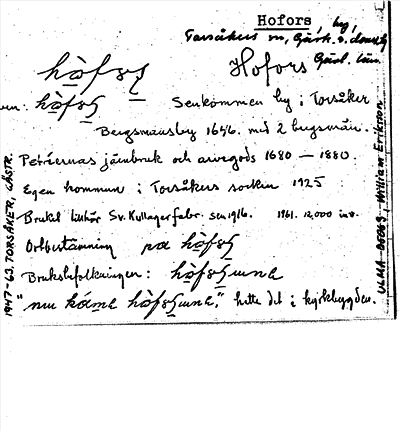 Hofors, by,
Torsåkers sn, Gästr. ö. domsaga
Gävl. län.
Hofors
Senkommen by i Torsåker
Bergsmansby 1646. med 2 bergsmän.
Petréernas järnbruk och arvegods 1680 – 1880.
Egen kommun i Torsåkers socken 1925
Bruket tillhör Sv. Kullagerfabr. sen 1916. 1961. 12,000 inv.
Ortbestämning på
Bruksbefolkningen:
hette det i kyrkbygden.
1947-63. TORSÅKER, GÄSTR.
William Eriksson